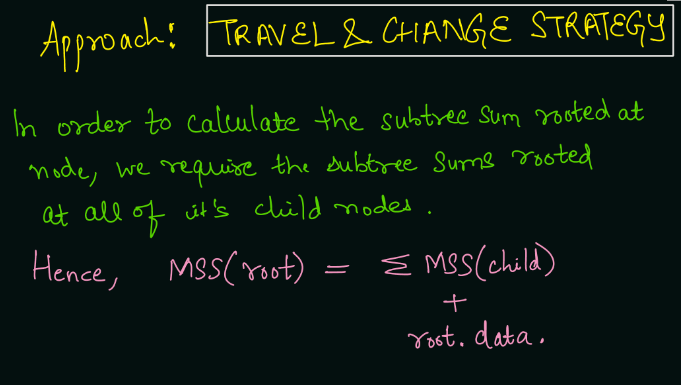 Approach: TRAVEL & CHANGE STRATEGY
In order to calculate the subtree sum rooted at
node, we require the subtree sums rooted
at all of it's child nodes.
Hence, MSS(root) = Σ MSS(child)
+
root.data.